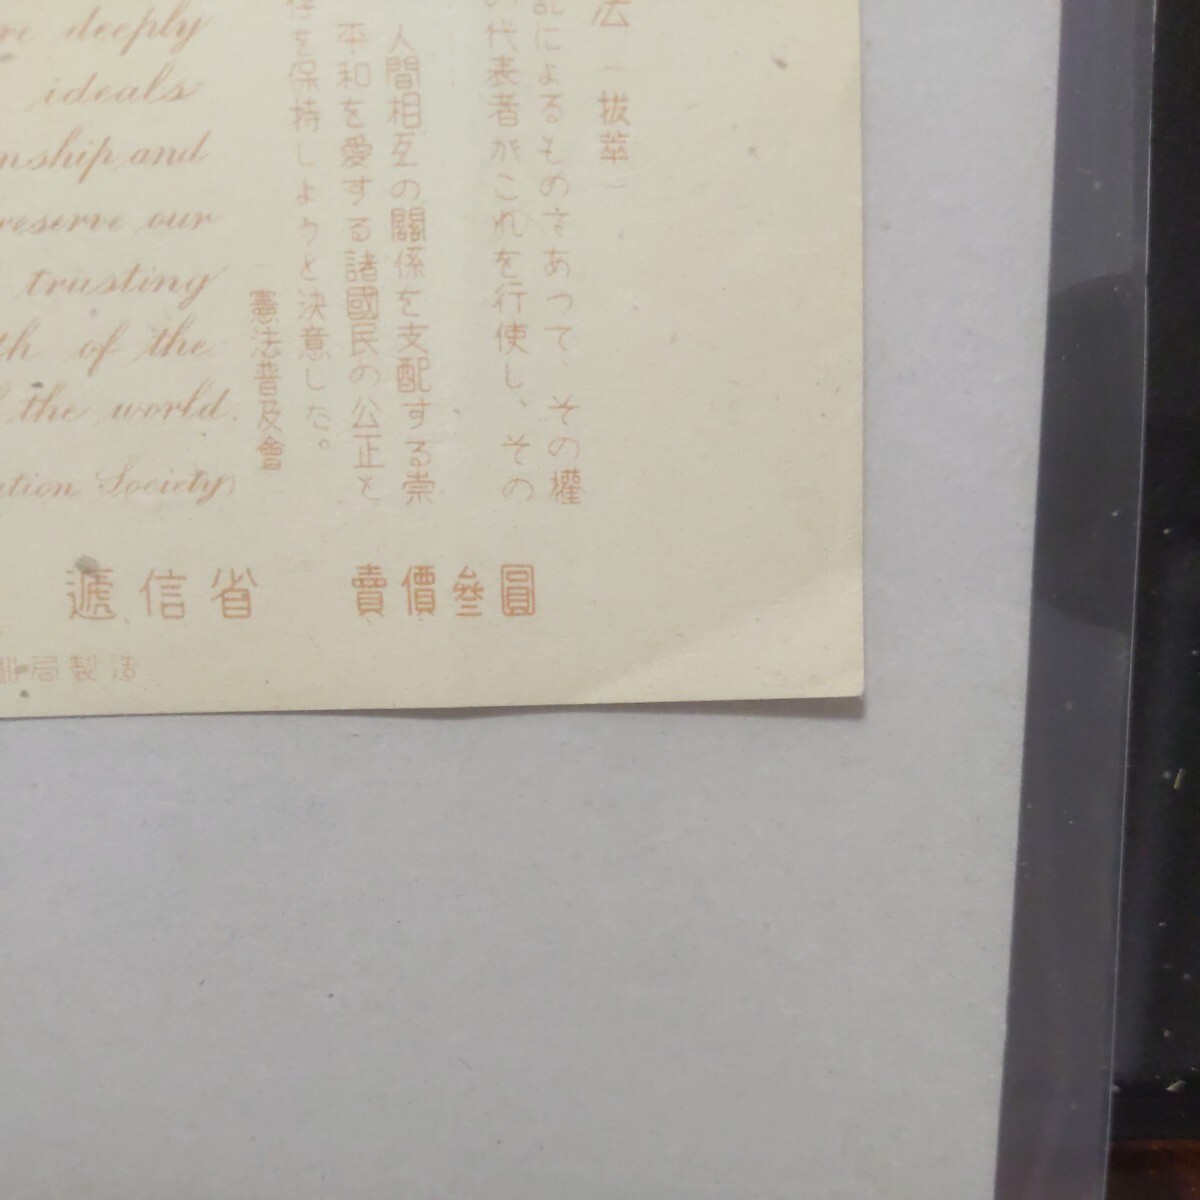 re deeply
ideals
nship and
reserve our
trusting
th of the
the world.
ation Society)
法(抜萃)
によるものであつて、その權
の代表者がこれを行使し、その
人間相互の關係を支配する崇
平和を愛する諸國民の公正と
を保持しようと決意した。
憲法普及會
遞信省 賣價參圓
局製造